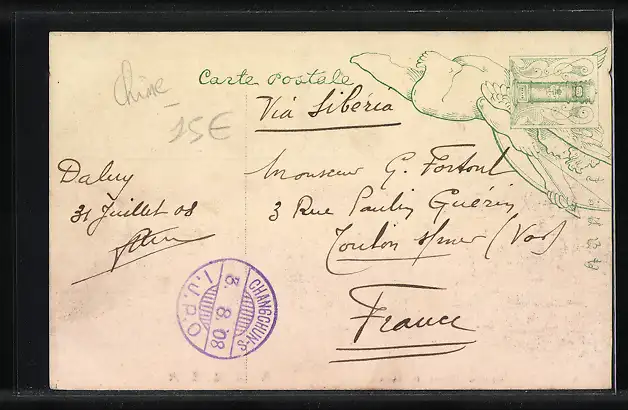 Chine
15€
Carte postale
Via Sibéria
Dalny
31 Juillet 08
Monsieur G. Fortoul
3 Rue Paulin Guérin
Toulon s/mer (Var)
France
CHANGCHUN-S
3.8.08
I.J.P.O